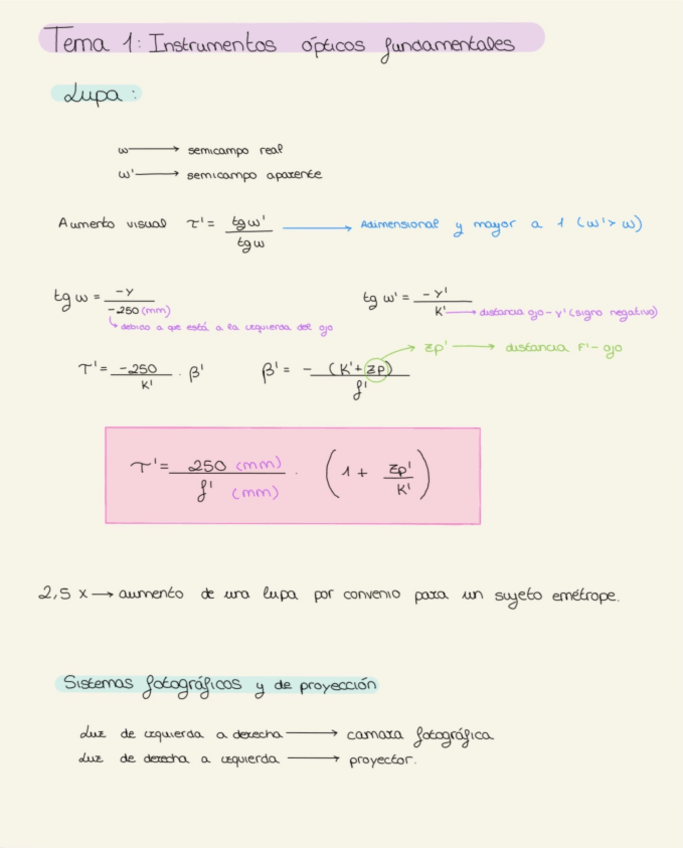 Tema 1: Instrumentos ópticos fundamentales
Lupa:
w → semicampo real
w' → semicampo aparente
Aumento visual τ' = tg w' / tg w → Adimensional y mayor a 1 (w' > w)
tg w = -y / -250 (mm)
↳ debido a que está a la izquierda del ojo
tg w' = -y' / K' → distancia ojo-y' (signo negativo)
τ' = -250 / K' · β'
β' = - (K' + zp) / f'
zp' → distancia F'-ojo
τ' = 250 (mm) / f' (mm) · (1 + zp' / K')
2,5 x → aumento de una lupa por convenio para un sujeto emétrope.
Sistemas fotográficos y de proyección
Luz de izquierda a derecha → camara fotográfica
Luz de derecha a izquierda → proyector.